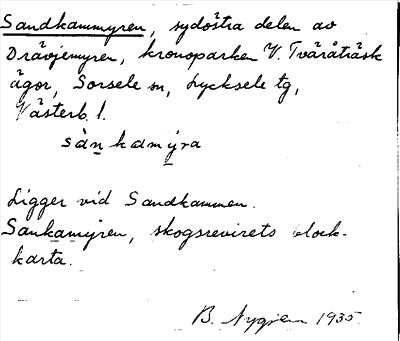 Sandkammyren, sydöstra delen av
Drävjemyren, kronoparken V. Tväråträsk
ägor, Sorsele sn, Lycksele tg,
Västerb. l.
sàn kamýra
Ligger vid Sandkammen.
Sankamyren, skogsrevirets block-
karta.
B. Nygren 1935